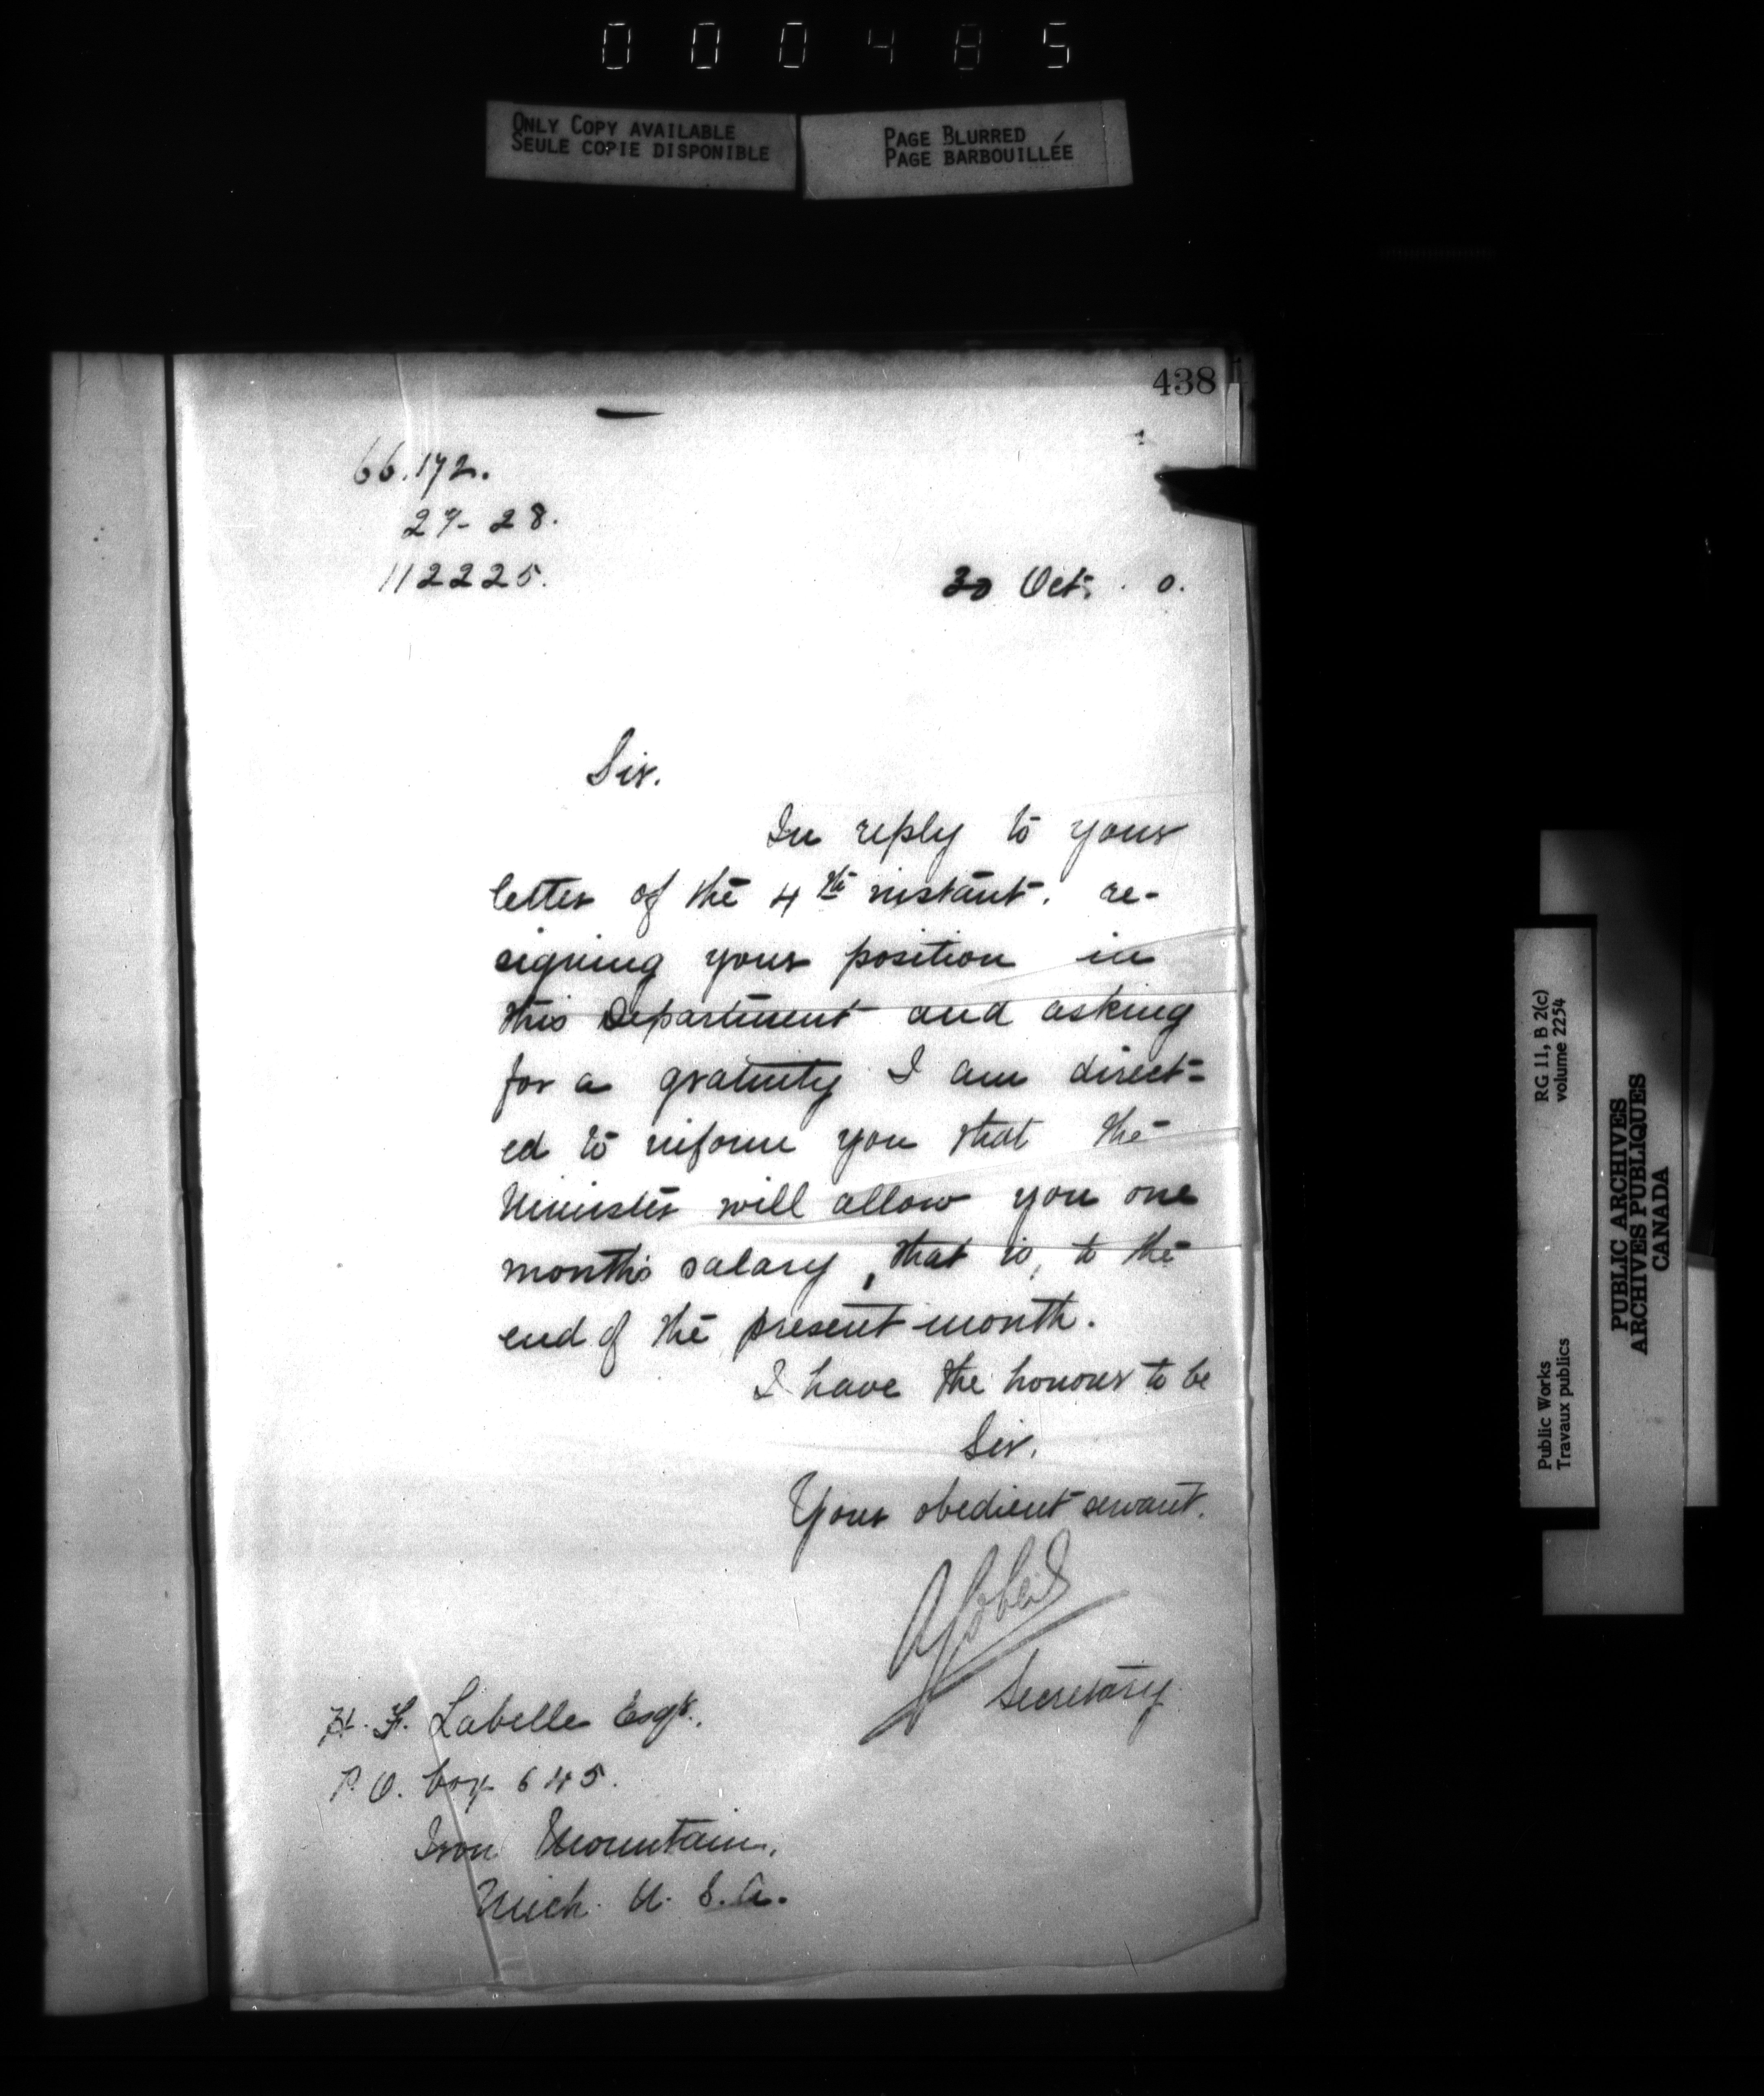 000485
ONLY COPY AVAILABLE
SEULE COPIE DISPONIBLE
PAGE BLURRED
PAGE BARBOUILLÉE
438
66.172.
27-28.
112225.
30 Oct. 0.
Sir.
In reply to your
letter of the 4th instant. re-
signing your position in
this Department and asking
for a gratuity I am direct=
ed to inform you that the
Minister will allow you one
month's salary, that is, to the
end of the present month.
I have the honour to be
Sir.
Your obedient servant.
Secretary
H. F. Labelle Esqr.,
P.O. box 645.
Iron Mountain,
Mich. U.S.A.
RG 11, B 2(c)
volume 2254
Public Works
Travaux publics
PUBLIC ARCHIVES
ARCHIVES PUBLIQUES
CANADA